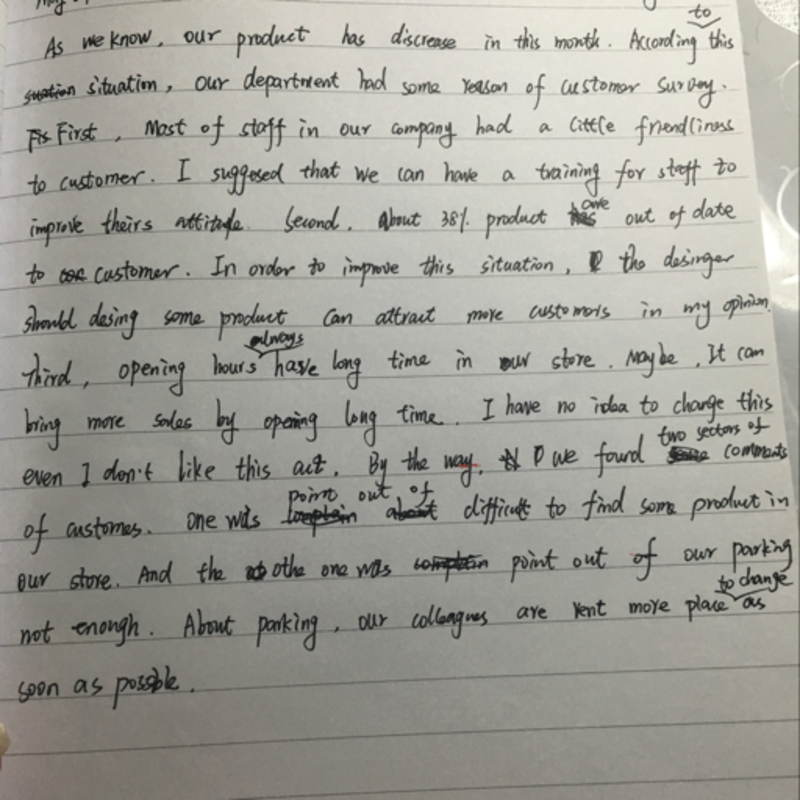 As we know, our product has discrease in this month. According to this
situation, our department had some reason of customer survey.
First, Most of staff in our company had a little friendliness
to customer. I suggesed that we can have a training for staff to
improve theirs attitude. Second, about 38% product are out of date
to customer. In order to improve this situation, the desinger
should desing some product can attract more customers in my opinion.
Third, opening hours always have long time in our store. Maybe, It can
bring more sales by opening long time. I have no idea to change this
even I don't like this act. By the way, we found two sectors of comments
of customes. One was point out of difficult to find some product in
our store. And the othe one was point out of our parking
not enough. About parking, our colleagues are rent more place to change as
soon as possble.